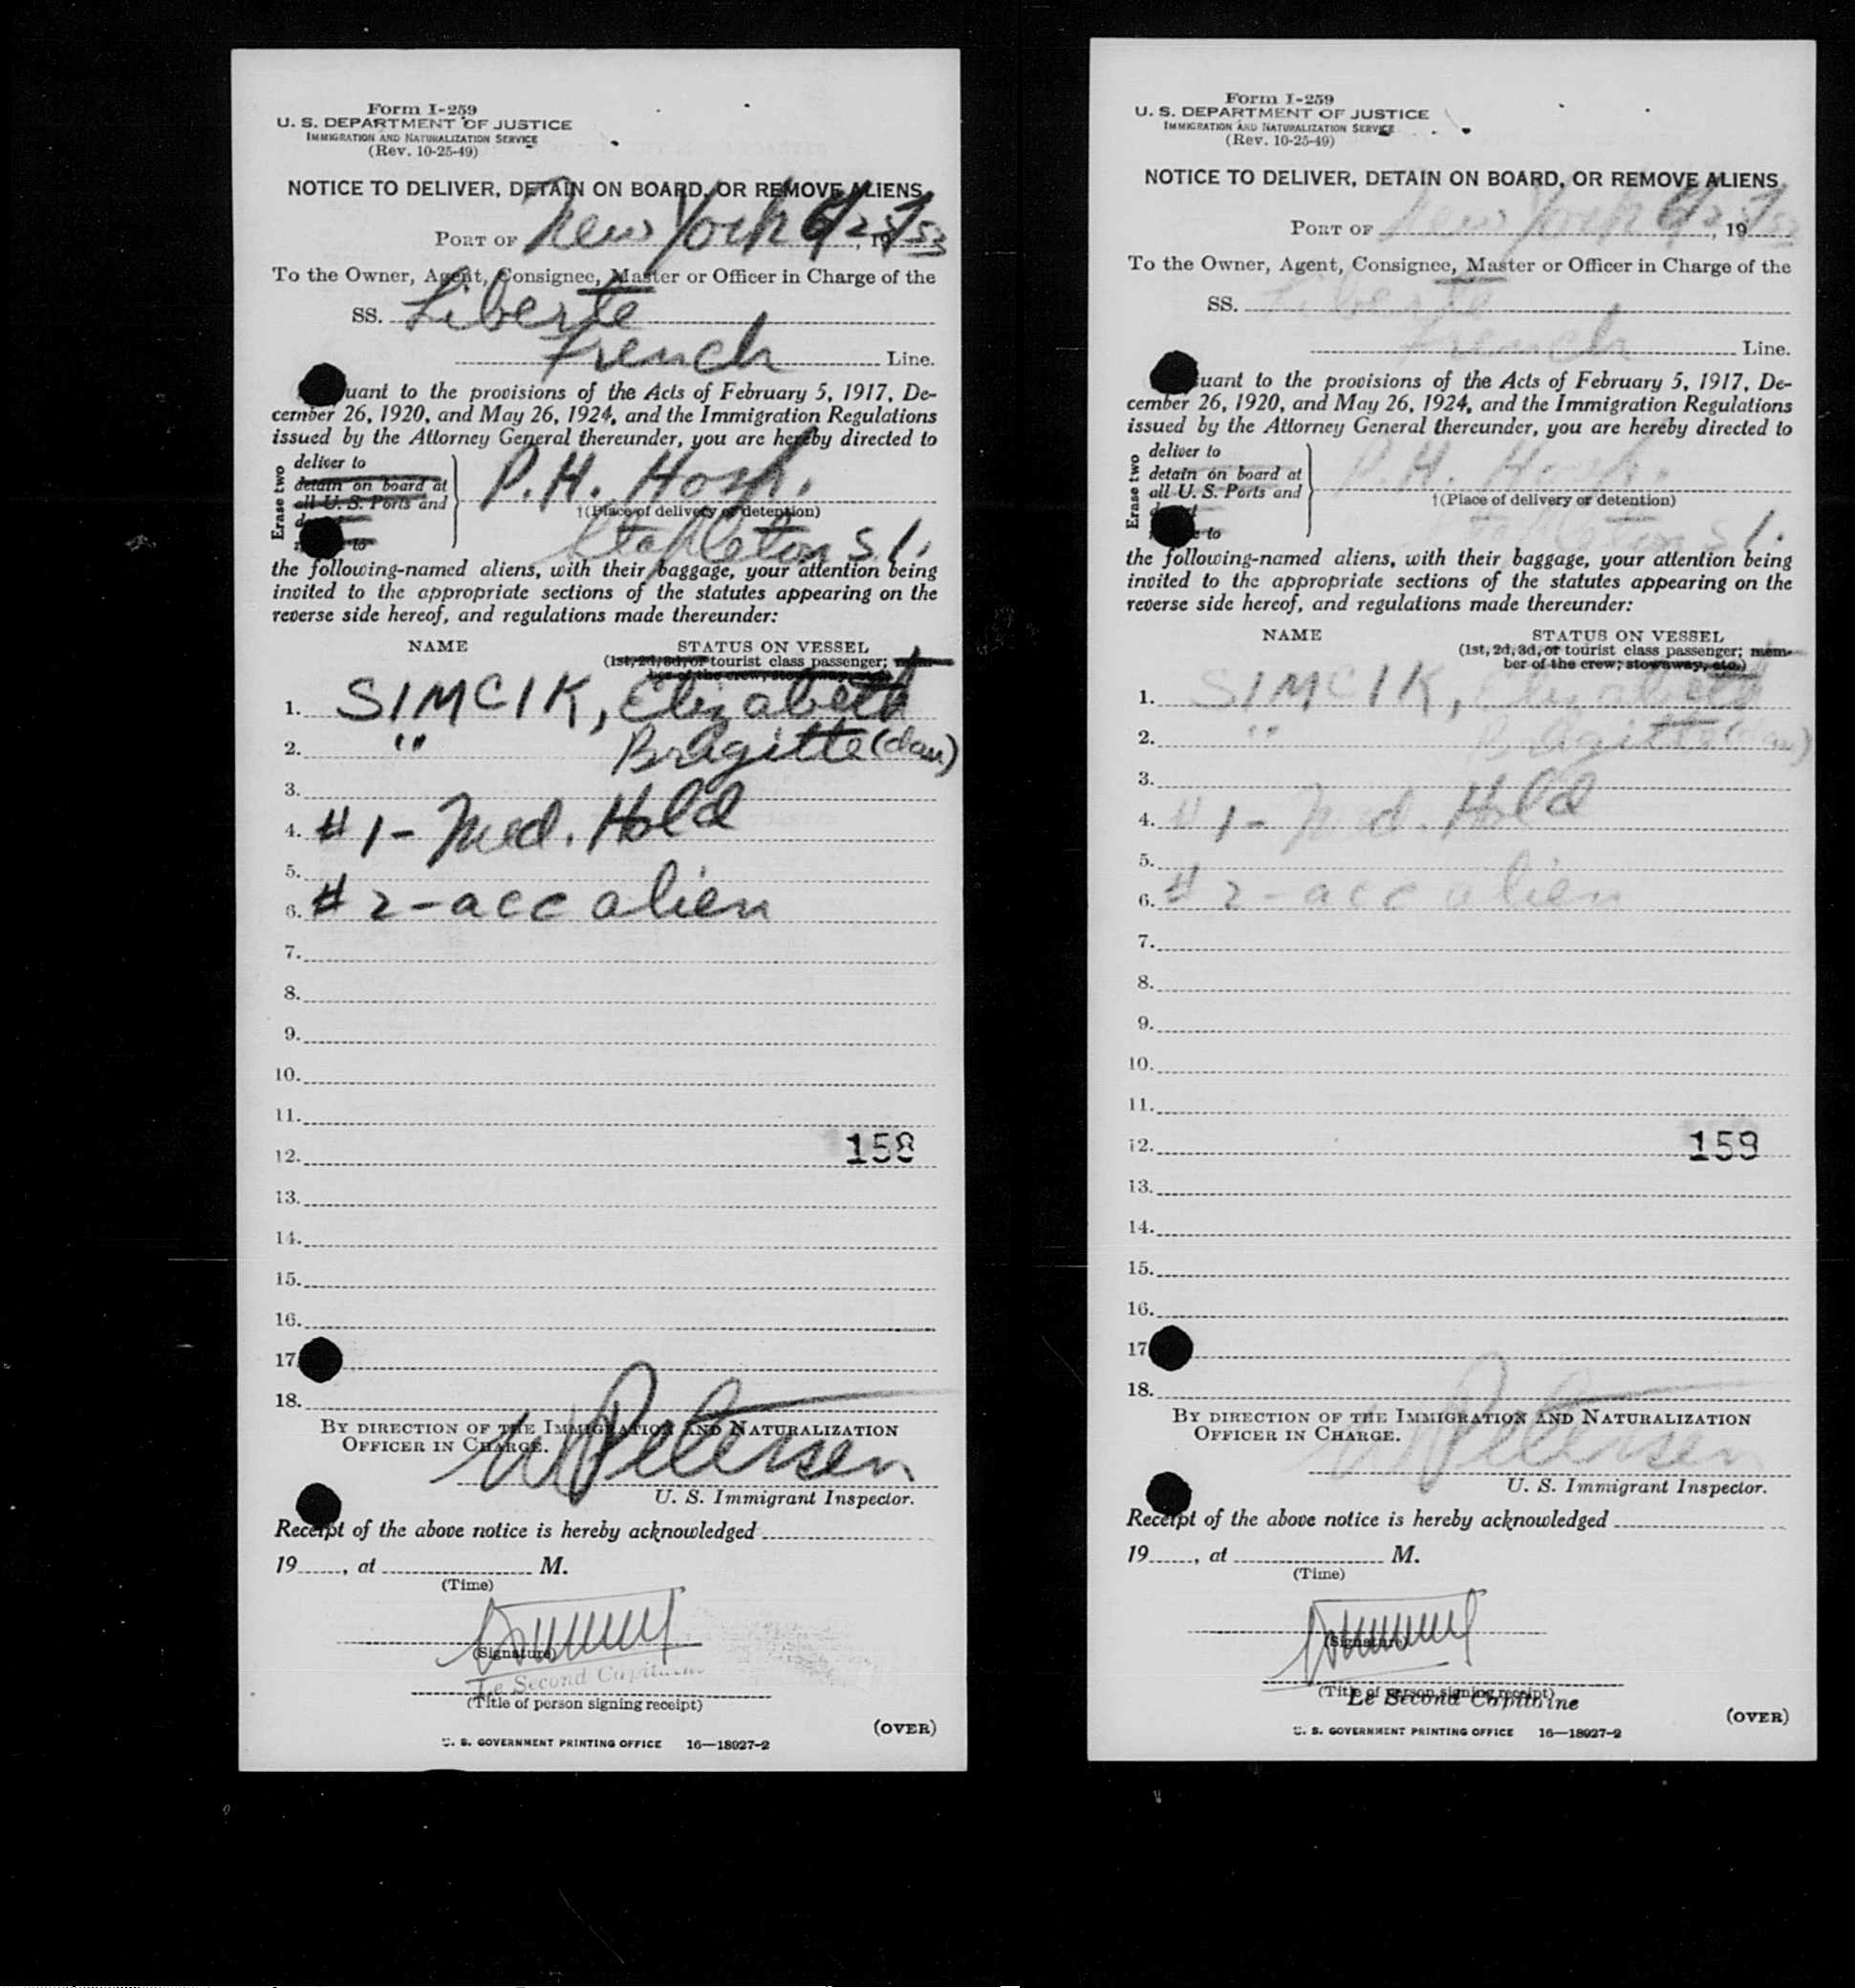 Form I-259
U. S. DEPARTMENT OF JUSTICE
IMMIGRATION AND NATURALIZATION SERVICE
(Rev. 10-25-49)
NOTICE TO DELIVER, DETAIN ON BOARD, OR REMOVE ALIENS
PORT OF New York 6/25/53, 19
To the Owner, Agent, Consignee, Master or Officer in Charge of the
SS. Liberte
French Line.
uant to the provisions of the Acts of February 5, 1917, De-
cember 26, 1920, and May 26, 1924, and the Immigration Regulations
issued by the Attorney General thereunder, you are hereby directed to
Erase two
deliver to
detain on board at
all U. S. Ports and
to
P.H. Hosp.
†(Place of delivery or detention)
Stapleton S.I.
the following-named aliens, with their baggage, your attention being
invited to the appropriate sections of the statutes appearing on the
reverse side hereof, and regulations made thereunder:
NAME STATUS ON VESSEL
(1st, 2d, 3d, or tourist class passenger; mem-
ber of the crew; stowaway, etc.)
1. SIMCIK, Elizabeth
2. " Bragitte (dau)
3.
4. #1- Med. Hold
5.
6. #2- acc alien
7.
8.
9.
10.
11.
12. 158
13.
14.
15.
16.
17.
18.
BY DIRECTION OF THE IMMIGRATION AND NATURALIZATION
OFFICER IN CHARGE.
W Petersen
U. S. Immigrant Inspector.
Receipt of the above notice is hereby acknowledged
19, at M.
(Time)
(Signature)
Le Second Capitaine
(Title of person signing receipt)
(OVER)
U. S. GOVERNMENT PRINTING OFFICE 16—18027-2
Form I-259
U. S. DEPARTMENT OF JUSTICE
IMMIGRATION AND NATURALIZATION SERVICE
(Rev. 10-25-49)
NOTICE TO DELIVER, DETAIN ON BOARD, OR REMOVE ALIENS
PORT OF New York 6/25/53, 19
To the Owner, Agent, Consignee, Master or Officer in Charge of the
SS. Liberte
French Line.
uant to the provisions of the Acts of February 5, 1917, De-
cember 26, 1920, and May 26, 1924, and the Immigration Regulations
issued by the Attorney General thereunder, you are hereby directed to
Erase two
deliver to
detain on board at
all U. S. Ports and
to
P.H. Hosp.
†(Place of delivery or detention)
Stapleton S.I.
the following-named aliens, with their baggage, your attention being
invited to the appropriate sections of the statutes appearing on the
reverse side hereof, and regulations made thereunder:
NAME STATUS ON VESSEL
(1st, 2d, 3d, or tourist class passenger; mem-
ber of the crew; stowaway, etc.)
1. SIMCIK, Elizabeth
2. " Bragitte (dau)
3.
4. #1- Med. Hold
5.
6. #2- acc alien
7.
8.
9.
10.
11.
12. 159
13.
14.
15.
16.
17
18.
BY DIRECTION OF THE IMMIGRATION AND NATURALIZATION
OFFICER IN CHARGE.
W Petersen
U. S. Immigrant Inspector.
Receipt of the above notice is hereby acknowledged
19, at M.
(Time)
(Signature)
(Title of person signing receipt)
Le Second Capitaine
(OVER)
U. S. GOVERNMENT PRINTING OFFICE 16—18027-2